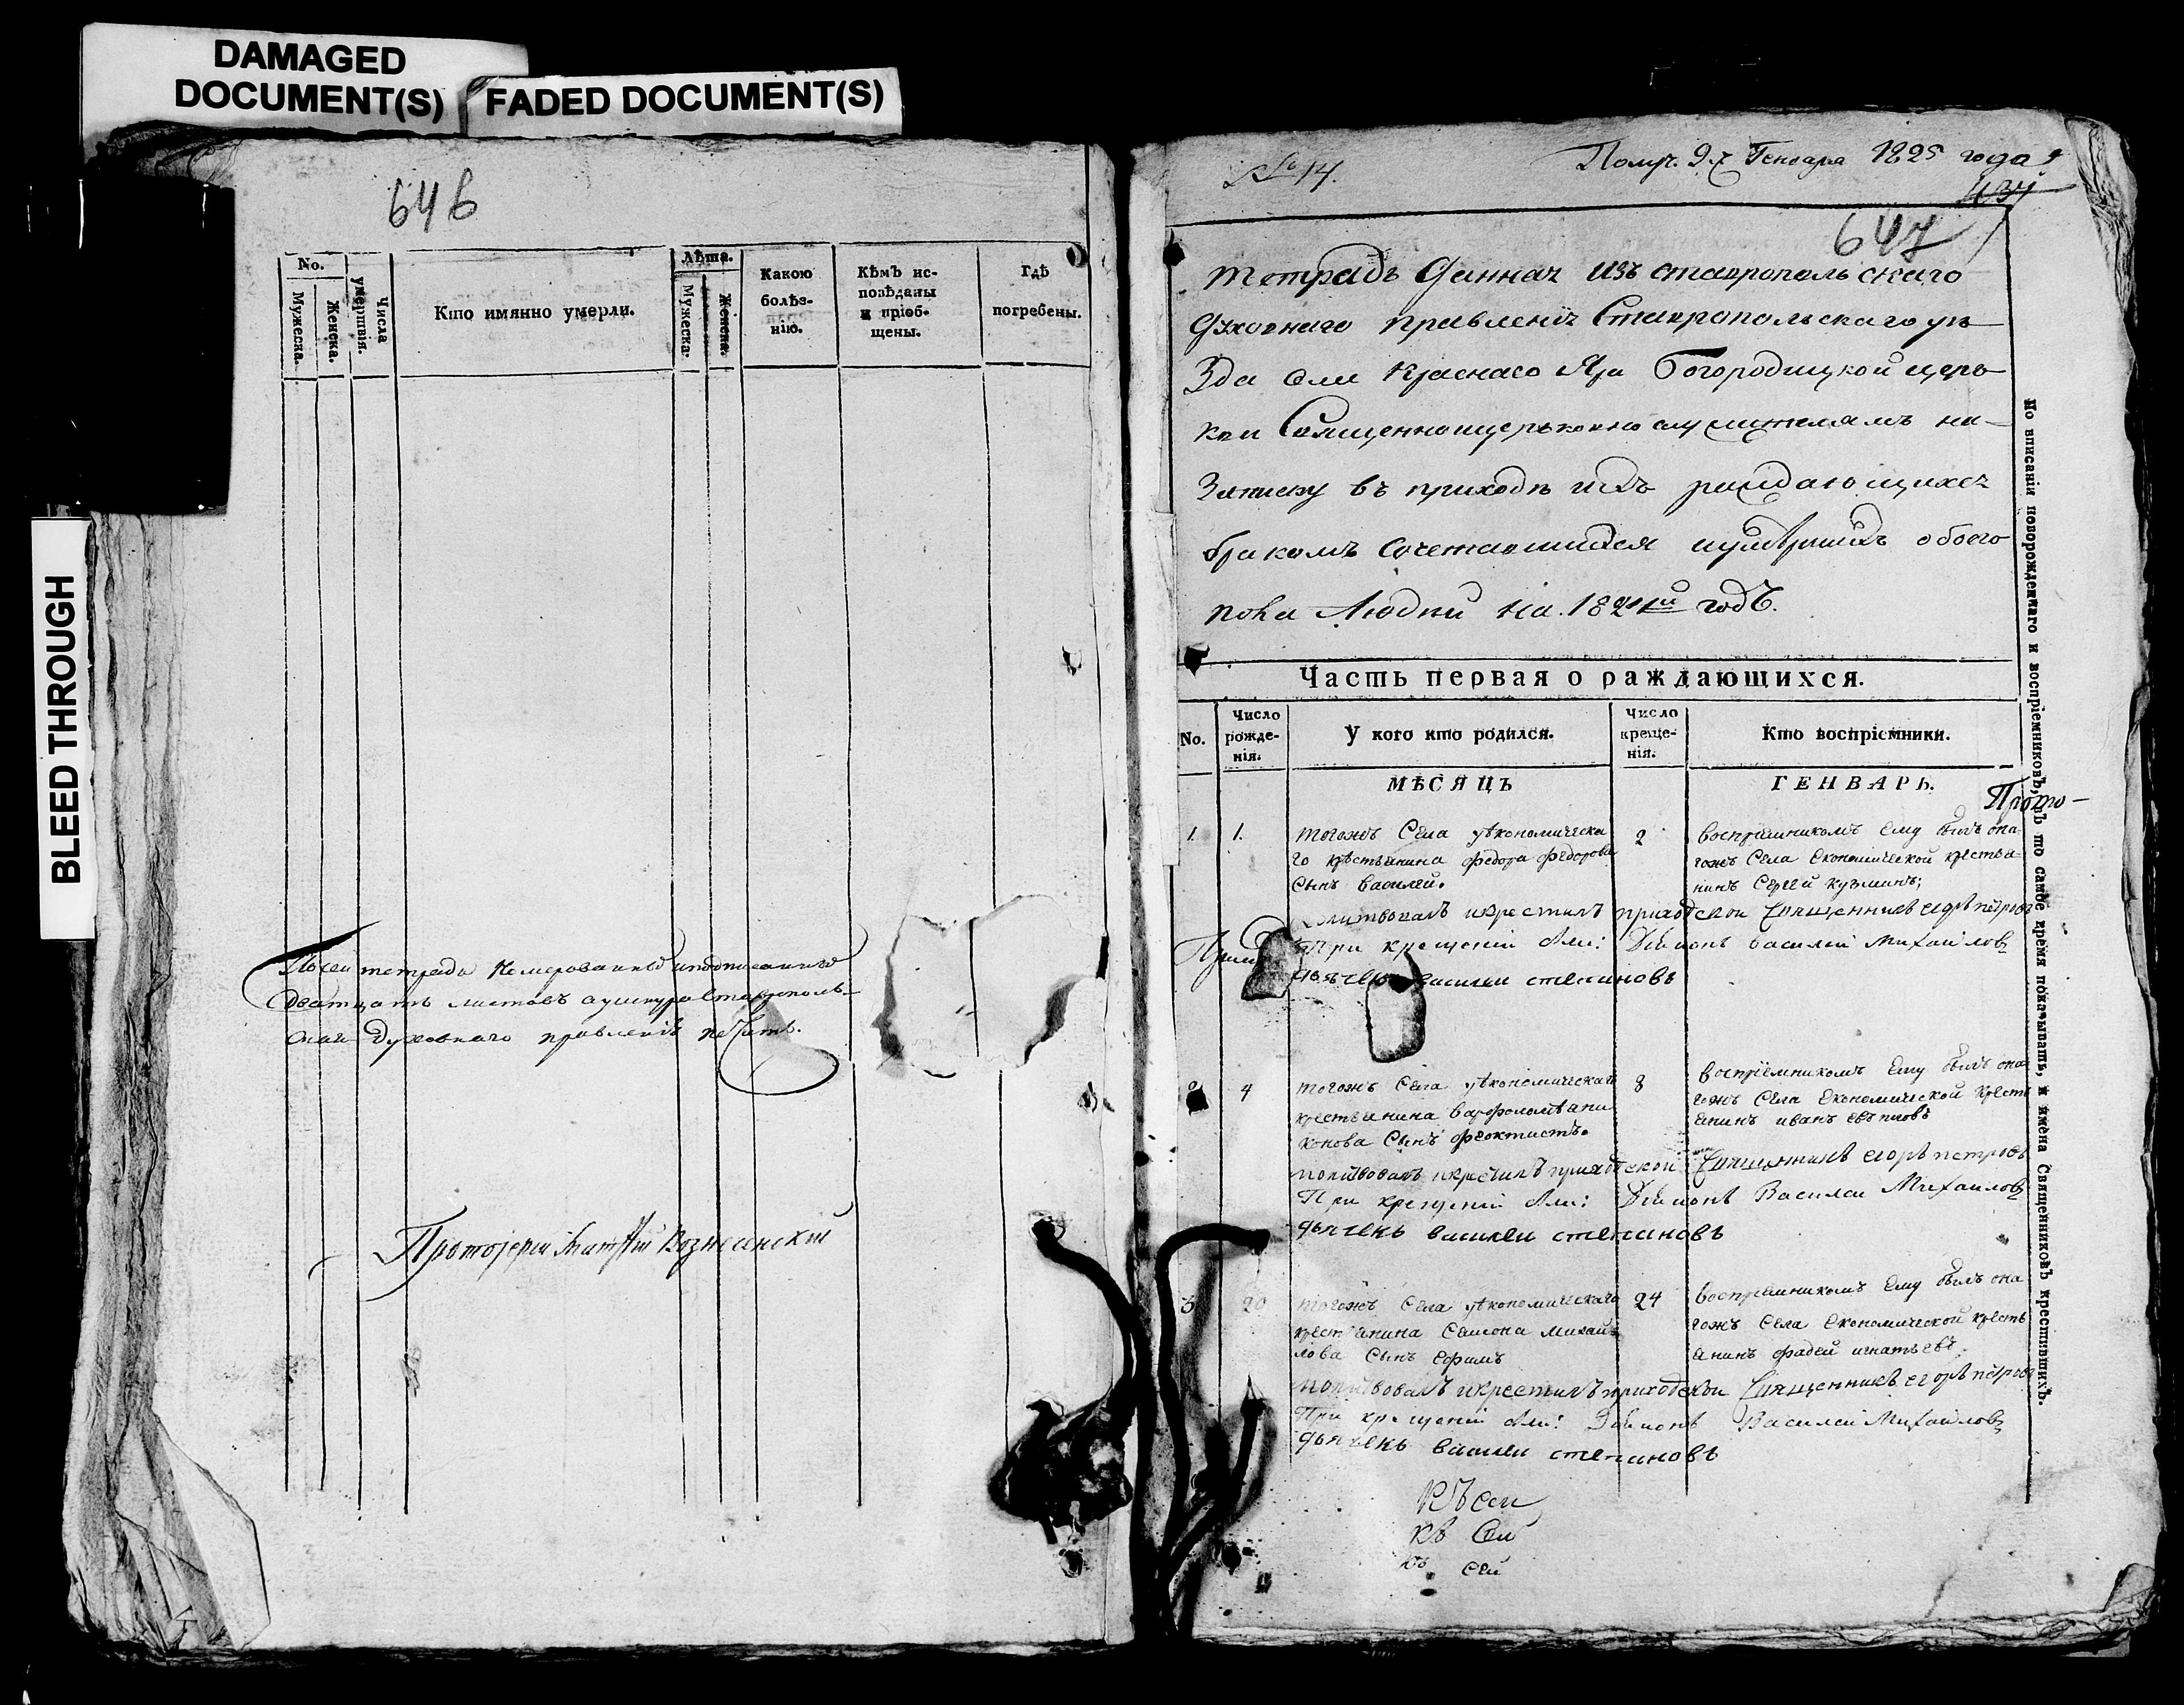 DAMAGED
DOCUMENT(S)
FADED DOCUMENT(S)
BLEED THROUGH
646
No.
Мужеска.
Женска.
Числа
умертвія.
Кто имянно умерли.
Лѣта.
Мужеска.
Женска.
Какою
болѣз-
нію.
Кѣмъ ис-
повѣданы
и пріоб-
щены.
Гдѣ
погребены.
Посеи тетради
дватцать листовъ
скаго Духовнаго правленія печать.
Протоіереи Вознесенскій
№ 14.
Получ. Генваря 1825 года
647
тетрадь Данная изъ ставропольскаго
Духовнаго правленія Ставропольскаго уѣ
Зда села Краснаго Яра Богородицкой церь
кви Священноцерьковнослужителямъ на
Записку въ приходѣ ихъ раждающихся
бракомъ сочетавшихся иумершихъ обоего
пола Людей на 1824й годъ.
Часть первая о раждающихся.
No.
Число
рожде-
нія.
У кого кто родился.
Число
креще-
нія.
Кто воспріемники.
МѢСЯЦЪ
ГЕНВАРЬ.
Прото-
1.
1.
тогожъ Села економическа
го крестьянина федора федорова
Сынъ василей.
2
воспріемникомъ Ему былъ она
гожъ Села Економической крестья
нинъ Сергей кузминъ;
молитвовалъ икрестилъ приходской Священникъ егоръ петровъ
При крещеніи были: Диаконъ василей Михайловъ
дьячекъ василеи степановъ
2
4
тогожъ Села економическаго
крестьянина варфоломѣя ни
конова Сынъ феоктистъ.
8
воспріемникомъ Ему былъ она
гожъ Села Економической кресть
янинъ иванъ
молитвовалъ икрестилъ приходской Священникъ егоръ петровъ
При крещеніи были: Диаконъ Василеи Михаиловъ
дьячекъ василеи степановъ
3
20
тогожъ Села економическаго
крестьянина Семіона михаи
лова Сынъ ефимъ
24
воспріемникомъ Ему былъ она
гожъ Села Економической кресть
янинъ фадей игнатьевъ.
молитвовалъ икрестилъ приходскои Священникъ егоръ петровъ
При крещеніи были: Диаконъ Василеи Михаиловъ
дьячекъ василеи степановъ
Къ сеи
къ Сеи
къ сеи
По вписаніи новорожденнаго и воспріемниковъ, въ то самое время показывать, и имена Священниковъ крестившихъ.